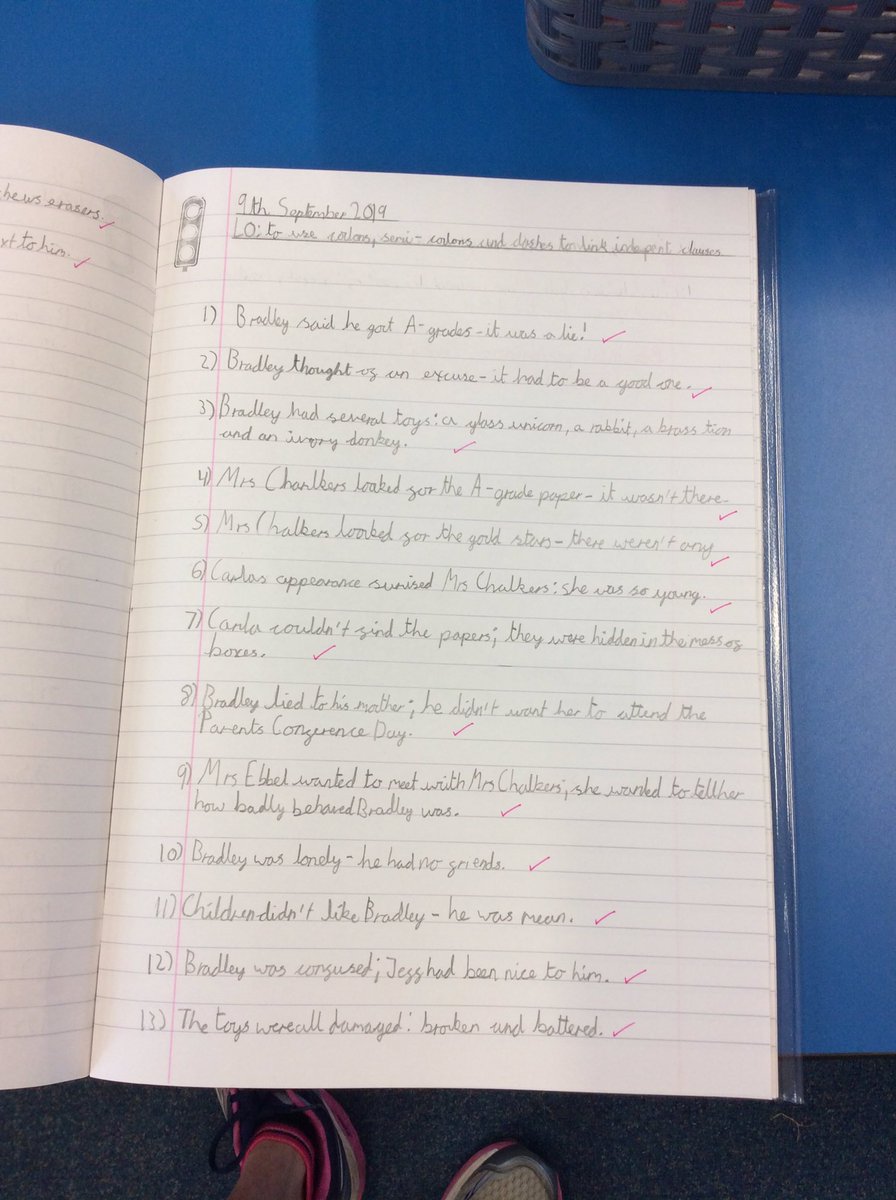 hews erasers.
xt to him.
9th September 2019
LO: to use colons, semi-colons and dashes to link indepent clauses
1) Bradley said he got A-grades - it was a lie!
2) Bradley thought of an excuse - it had to be a good one.
3) Bradley had several toys: a glass unicorn, a rabbit, a brass lion
and an ivory donkey.
4) Mrs Chanlkers looked for the A-grade paper - it wasn't there.
5) Mrs Chalkers looked for the gold stars - there weren't any
6) Carlas appearance surised Mrs Chalkers: she was so young.
7) Carla couldn't find the papers; they were hidden in the mess of
boxes.
8) Bradley lied to his mother; he didn't want her to attend the
Parents Conference Day.
9) Mrs Ebbel wanted to meet with Mrs Chalkers; she wanted to tell her
how badly behaved Bradley was.
10) Bradley was lonely - he had no friends.
11) Children didn't like Bradley - he was mean.
12) Bradley was confused; Jeff had been nice to him.
13) The toys were all damaged: broken and battered.